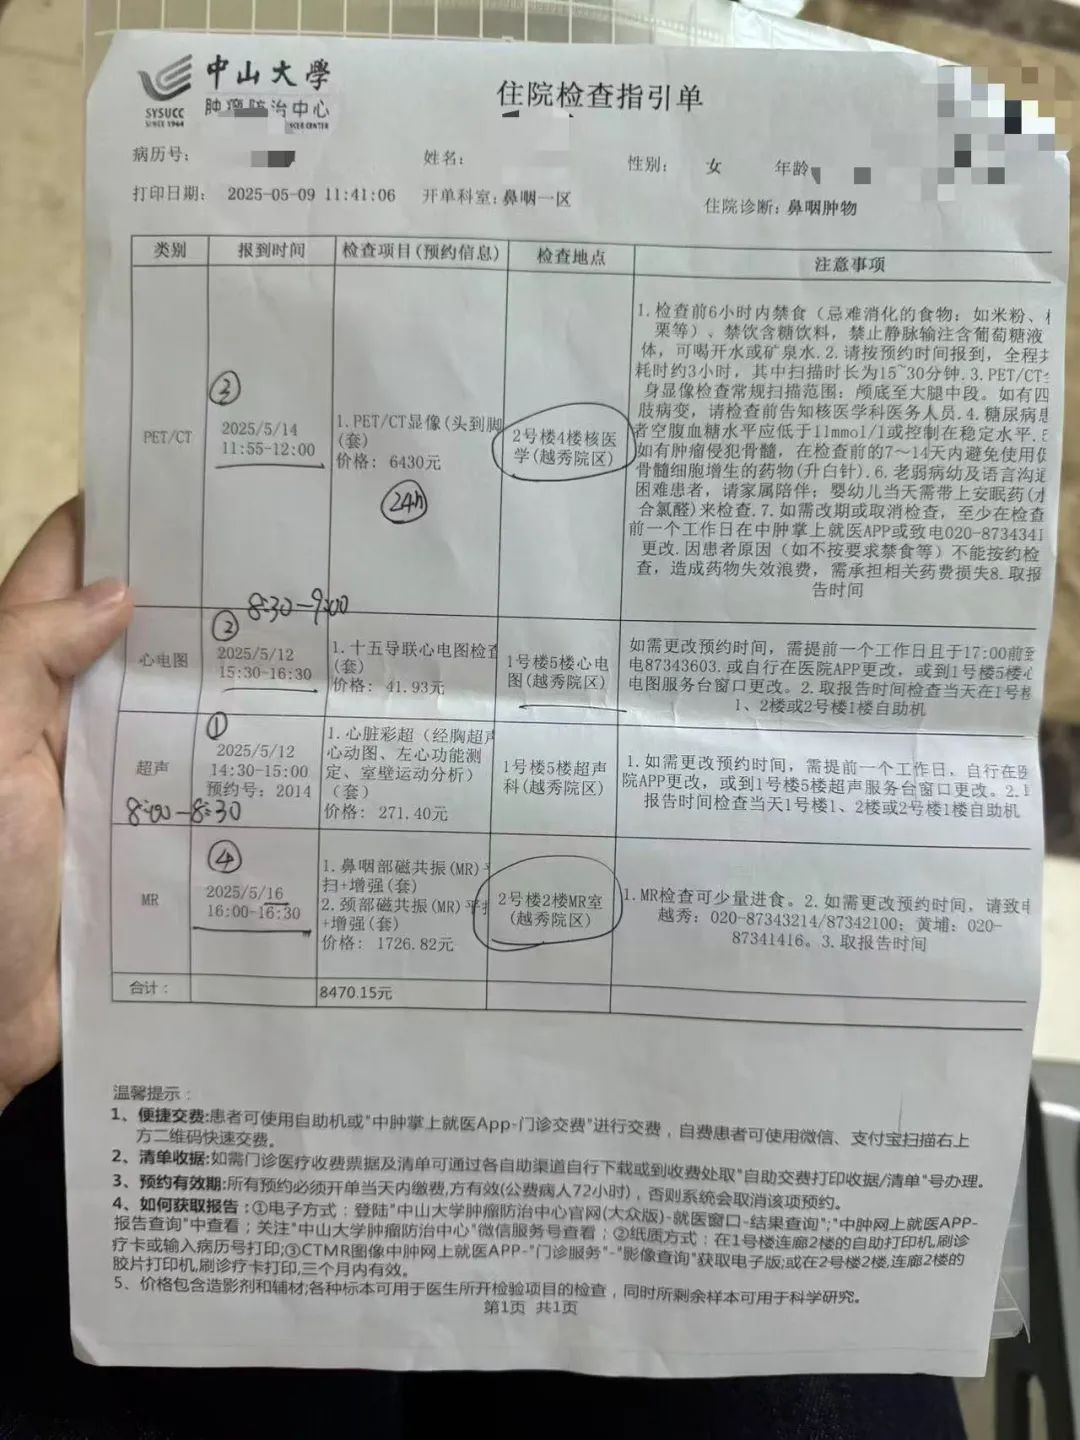 中山大學
肿瘤防治中心
SYSUCC
SINCE 1964
CER CENTER
住院检查指引单
病历号：
姓名：
性别： 女
年龄
打印日期： 2025-05-09 11:41:06
开单科室：鼻咽一区
住院诊断：鼻咽肿物
类别
报到时间
检查项目(预约信息)
检查地点
注意事项
PET/CT
③
2025/5/14
11:55-12:00
1.PET/CT显像(头到脚
(套)
价格: 6430元
24h
2号楼4楼核医
学(越秀院区)
1.检查前6小时内禁食（忌难消化的食物：如米粉、
栗等）、禁饮含糖饮料，禁止静脉输注含葡萄糖液
体，可喝开水或矿泉水.2.请按预约时间报到，全程共
耗时约3小时，其中扫描时长为15~30分钟.3.PET/CT全
身显像检查常规扫描范围：颅底至大腿中段。如有四
肢病变，请检查前告知核医学科医务人员.4.糖尿病患
者空腹血糖水平应低于11mmol/l或控制在稳定水平.5
如有肿瘤侵犯骨髓，在检查前的7～14天内避免使用促
骨髓细胞增生的药物(升白针).6.老弱病幼及语言沟通
困难患者，请家属陪伴；婴幼儿当天需带上安眠药(水
合氯醛)来检查.7.如需改期或取消检查，至少在检查
前一个工作日在中肿掌上就医APP或致电020-8734341
更改.因患者原因（如不按要求禁食等）不能按约检
查，造成药物失效浪费，需承担相关药费损失8.取报
告时间
8:30-9:00
心电图
②
2025/5/12
15:30-16:30
1.十五导联心电图检查
(套)
价格: 41.93元
1号楼5楼心电
图(越秀院区)
如需更改预约时间，需提前一个工作日且于17:00前致
电87343603.或自行在医院APP更改，或到1号楼5楼心
电图服务台窗口更改。2.取报告时间检查当天在1号楼
1、2楼或2号楼1楼自助机
超声
①
2025/5/12
14:30-15:00
预约号：2014
8:00-8:30
1.心脏彩超（经胸超声
心动图、左心功能测
定、室壁运动分析）
（套）
价格: 271.40元
1号楼5楼超声
科(越秀院区)
1.如需更改预约时间，需提前一个工作日，自行在医
院APP更改，或到1号楼5楼超声服务台窗口更改。2.
报告时间检查当天1号楼1、2楼或2号楼1楼自助机
MR
④
2025/5/16
16:00-16:30
1.鼻咽部磁共振(MR)平
扫+增强(套)
2.颈部磁共振(MR)平扫
+增强(套)
价格: 1726.82元
2号楼2楼MR室
(越秀院区)
1.MR检查可少量进食。2.如需更改预约时间，请致电
越秀：020-87343214/87342100；黄埔：020-
87341416。3.取报告时间
合计：
8470.15元
温馨提示：
1、便捷交费:患者可使用自助机或"中肿掌上就医App-门诊交费"进行交费，自费患者可使用微信、支付宝扫描右上
方二维码快速交费。
2、清单收据:如需门诊医疗收费票据及清单可通过各自助渠道自行下载或到收费处取"自助交费打印收据/清单"号办理。
3、预约有效期:所有预约必须开单当天内缴费,方有效(公费病人72小时)，否则系统会取消该项预约。
4、如何获取报告：①电子方式：登陆"中山大学肿瘤防治中心官网(大众版)-就医窗口-结果查询";"中肿网上就医APP-
报告查询"中查看；关注"中山大学肿瘤防治中心"微信服务号查看；②纸质方式：在1号楼连廊2楼的自助打印机,刷诊
疗卡或输入病历号打印;③CTMR图像中肿网上就医APP-"门诊服务"-"影像查询"获取电子版;或在2号楼2楼,连廊2楼的
胶片打印机,刷诊疗卡打印,三个月内有效。
5、价格包含造影剂和辅材;各种标本可用于医生所开检验项目的检查，同时所剩余样本可用于科学研究。
第1页 共1页